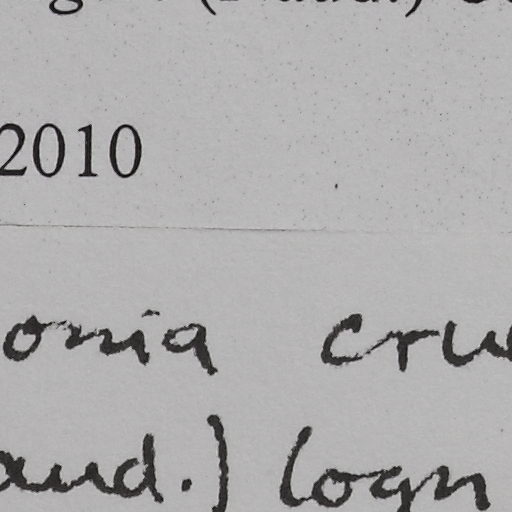 2010
onia cru
aud.) Cogn